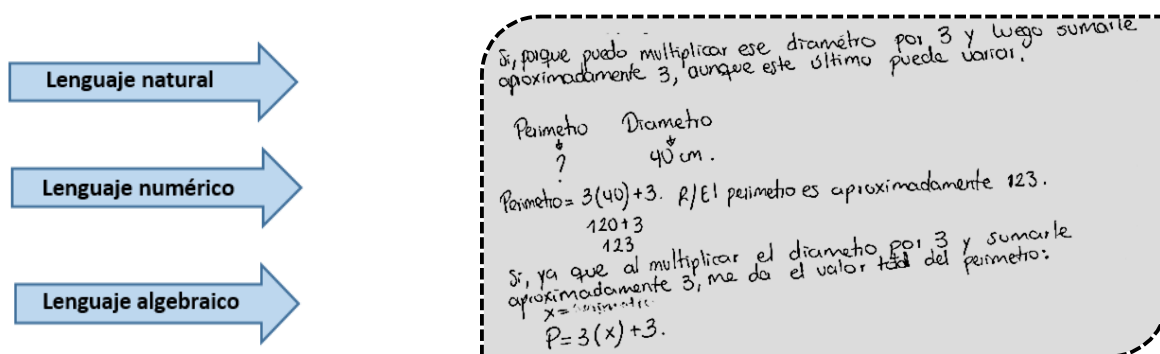 Lenguaje natural
Lenguaje numérico
Lenguaje algebraico
Si, porque puedo multiplicar ese diamétro por 3 y luego sumarle
aproximadamente 3, aunque este último puede variar.
Perimetro Diametro
? 40 cm.
Perimetro= 3(40)+3. R/El perimetro es aproximadamente 123.
120+3
123
Si, ya que al multiplicar el diametro por 3 y sumarle
aproximadamente 3, me da el valor del perimetro:
x=
P=3(x)+3.